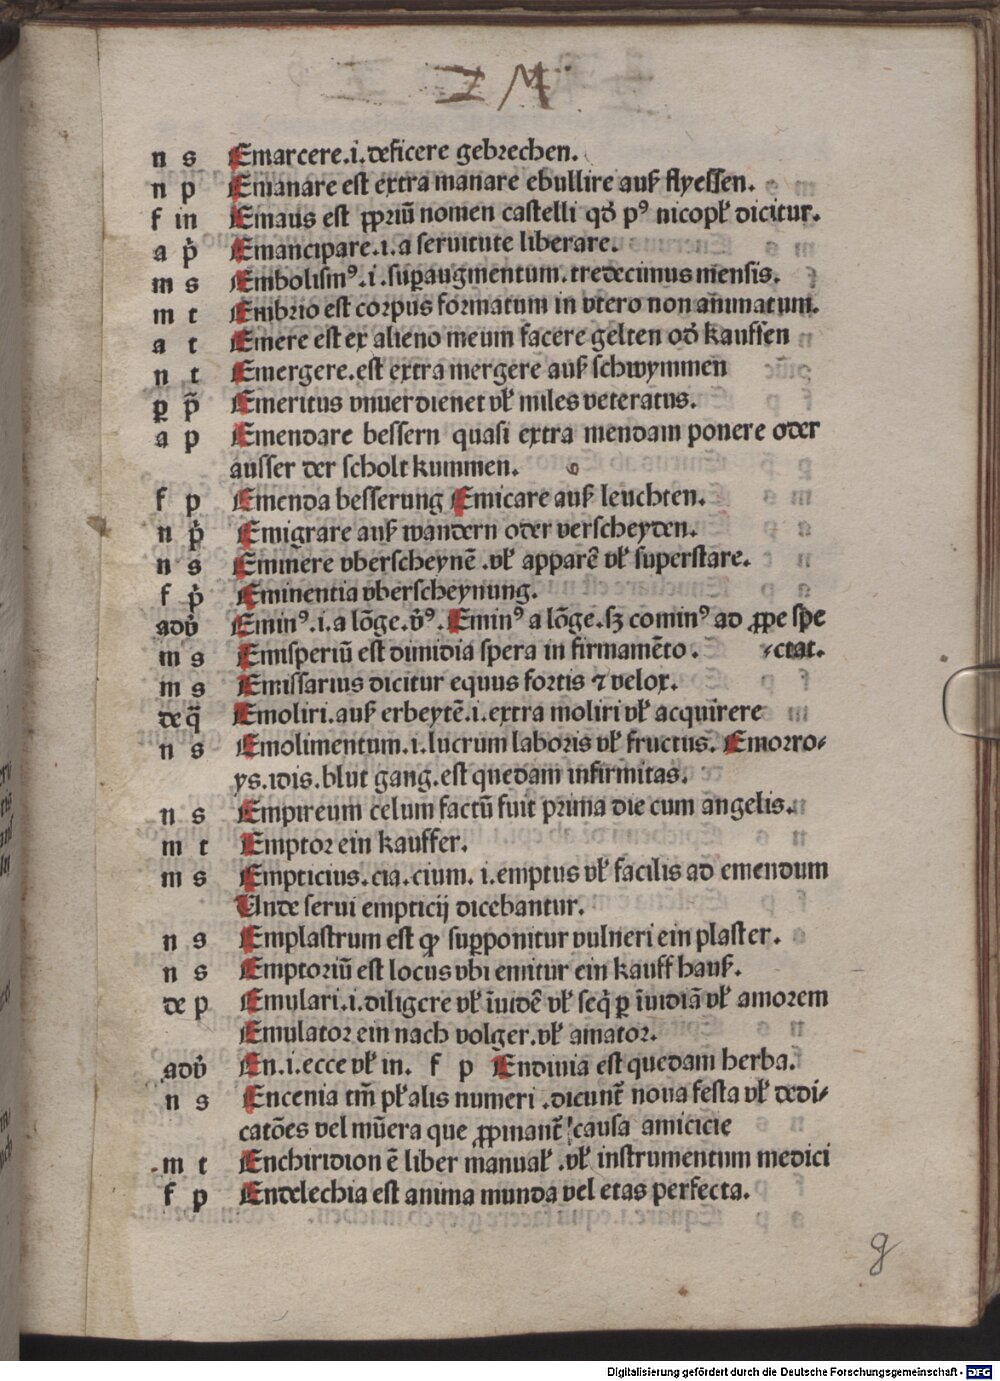 E M
n s Emarcere.i.deficere gebrechen.
n p Emanare est extra manare ebullire auß flyessen.
f in Emaus est ꝓpriū nomen castelli qđ pꝰ nicopł dicitur.
a p̓ Emancipare.i.a seruitute liberare.
m s Embolismꝰ.i.suꝑaugmentum.tredecimus mensis.
m t Embrio est corpus formatum in vtero non aīmatum.
a t Emere est ex alieno meum facere gelten oď kauffen
n t Emergere.est extra mergere auß schwymmen
ꝑ p̄ Emeritus vnuerdienet vł miles veteratus.
a p Emendare bessern quasi extra mendam ponere oder
ausser der scholt kummen.
f p Emenda besserung Emicare auß leuchten.
n p̓ Emigrare auß wandern oder verscheyden.
n s Eminere vberscheynē .vł apparē vł superstare.
f p̓ Eminentia vberscheynung.
adv̓ Eminꝰ.i.a lōge.v̓ꝰ. Eminꝰ a lōge.sꝫ cominꝰ ad ꝓpe spe
m s Emisperiū est dimidia spera in firmamēto . ⸗ctat.
m s Emissarius dicitur equus fortis ⁊ velox.
de q̄ Emoliri.auß erbeytē.i.extra moliri vł acquirere
n s Emolimentum.i.lucrum laboris vł fructus. Emorro⸗
ys.idis.blut gang.est quedam infirmitas.
n s Empireum celum factū fuit prima die cum angelis.
m t Emptor ein kauffer.
m s Empticius.cia.cium. i.emptus vł facilis ad emendum
Unde serui empticij dicebantur.
n s Emplastrum est qꝫ supponitur vulneri ein plaster.
n s Emptoriū est locus vbi emitur ein kauff hauß.
de p Emulari.i.diligere vł īuidē vł seq̓ ꝑ īuidiā vł amorem
Emulator ein nach volger.vł amator.
adv̓ En.i.ecce vł in. f p Endiuia est quedam herba.
n s Encenia tm̄ płalis numeri .dicunt̄ noua festa vł dedi⸗
catōes vel mūera que ꝓpinant̄ causa amicicie
m t Enchiridion ē liber manual .vł instrumentum medici
f p Endelechia est anima munda vel etas perfecta.
g
Digitalisierung gefördert durch die Deutsche Forschungsgemeinschaft - DFG